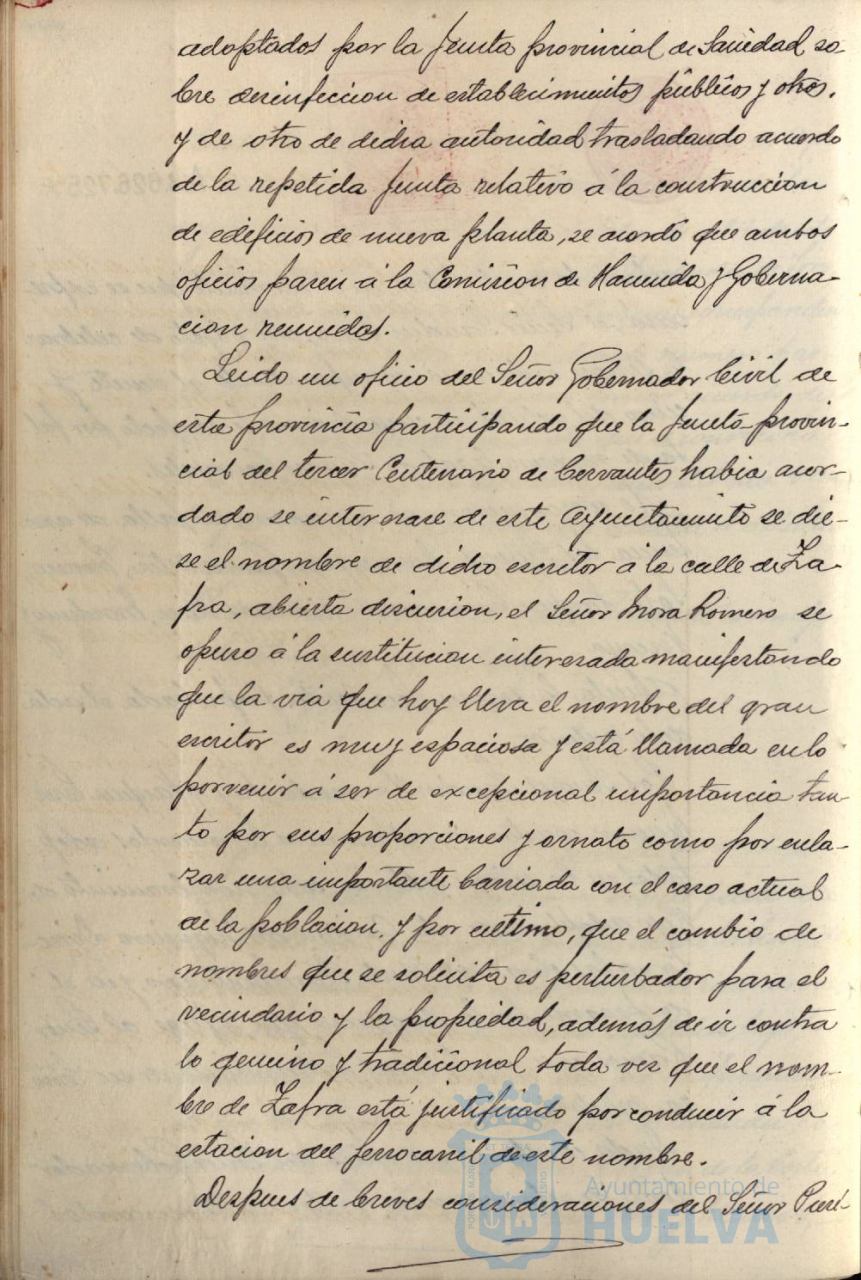 adoptados por la Junta provincial de Sanidad so-
bre desinfeccion de establecimientos públicos y otros.
y de otro de dicha autoridad trasladando acuerdo
de la repetida Junta relativo á la construccion
de edificios de nueva planta, se acordó que ambos
oficios pasen á la Comision de Hacienda y Goberna-
cion reunidas.
Leido un oficio del Señor Gobernador Civil de
esta provincia participando que la Junta provin-
cial del tercer Centenario de Cervantes habia acor-
dado se interesase de este Ayuntamiento se die-
se el nombre de dicho escritor á la calle de Za-
fra, abierta discusion, el Señor Mora Romero se
opuso á la sustitucion interesada manifestando
que la via que hoy lleva el nombre del gran
escritor es muy espaciosa y está llamada en lo
porvenir á ser de excepcional importancia tan-
to por sus proporciones y ornato como por enla-
zar una importante barriada con el casco actual
de la poblacion, y por ultimo, que el cambio de
nombres que se solicita es perturbador para el
vecindario y la propiedad, además de ir contra
lo genuino y tradicional toda vez que el nom-
bre de Zafra está justificado por conducir á la
estacion del ferrocarril de este nombre.
Despues de breves consideraciones del Señor Presi-
Ayuntamiento de
HUELVA